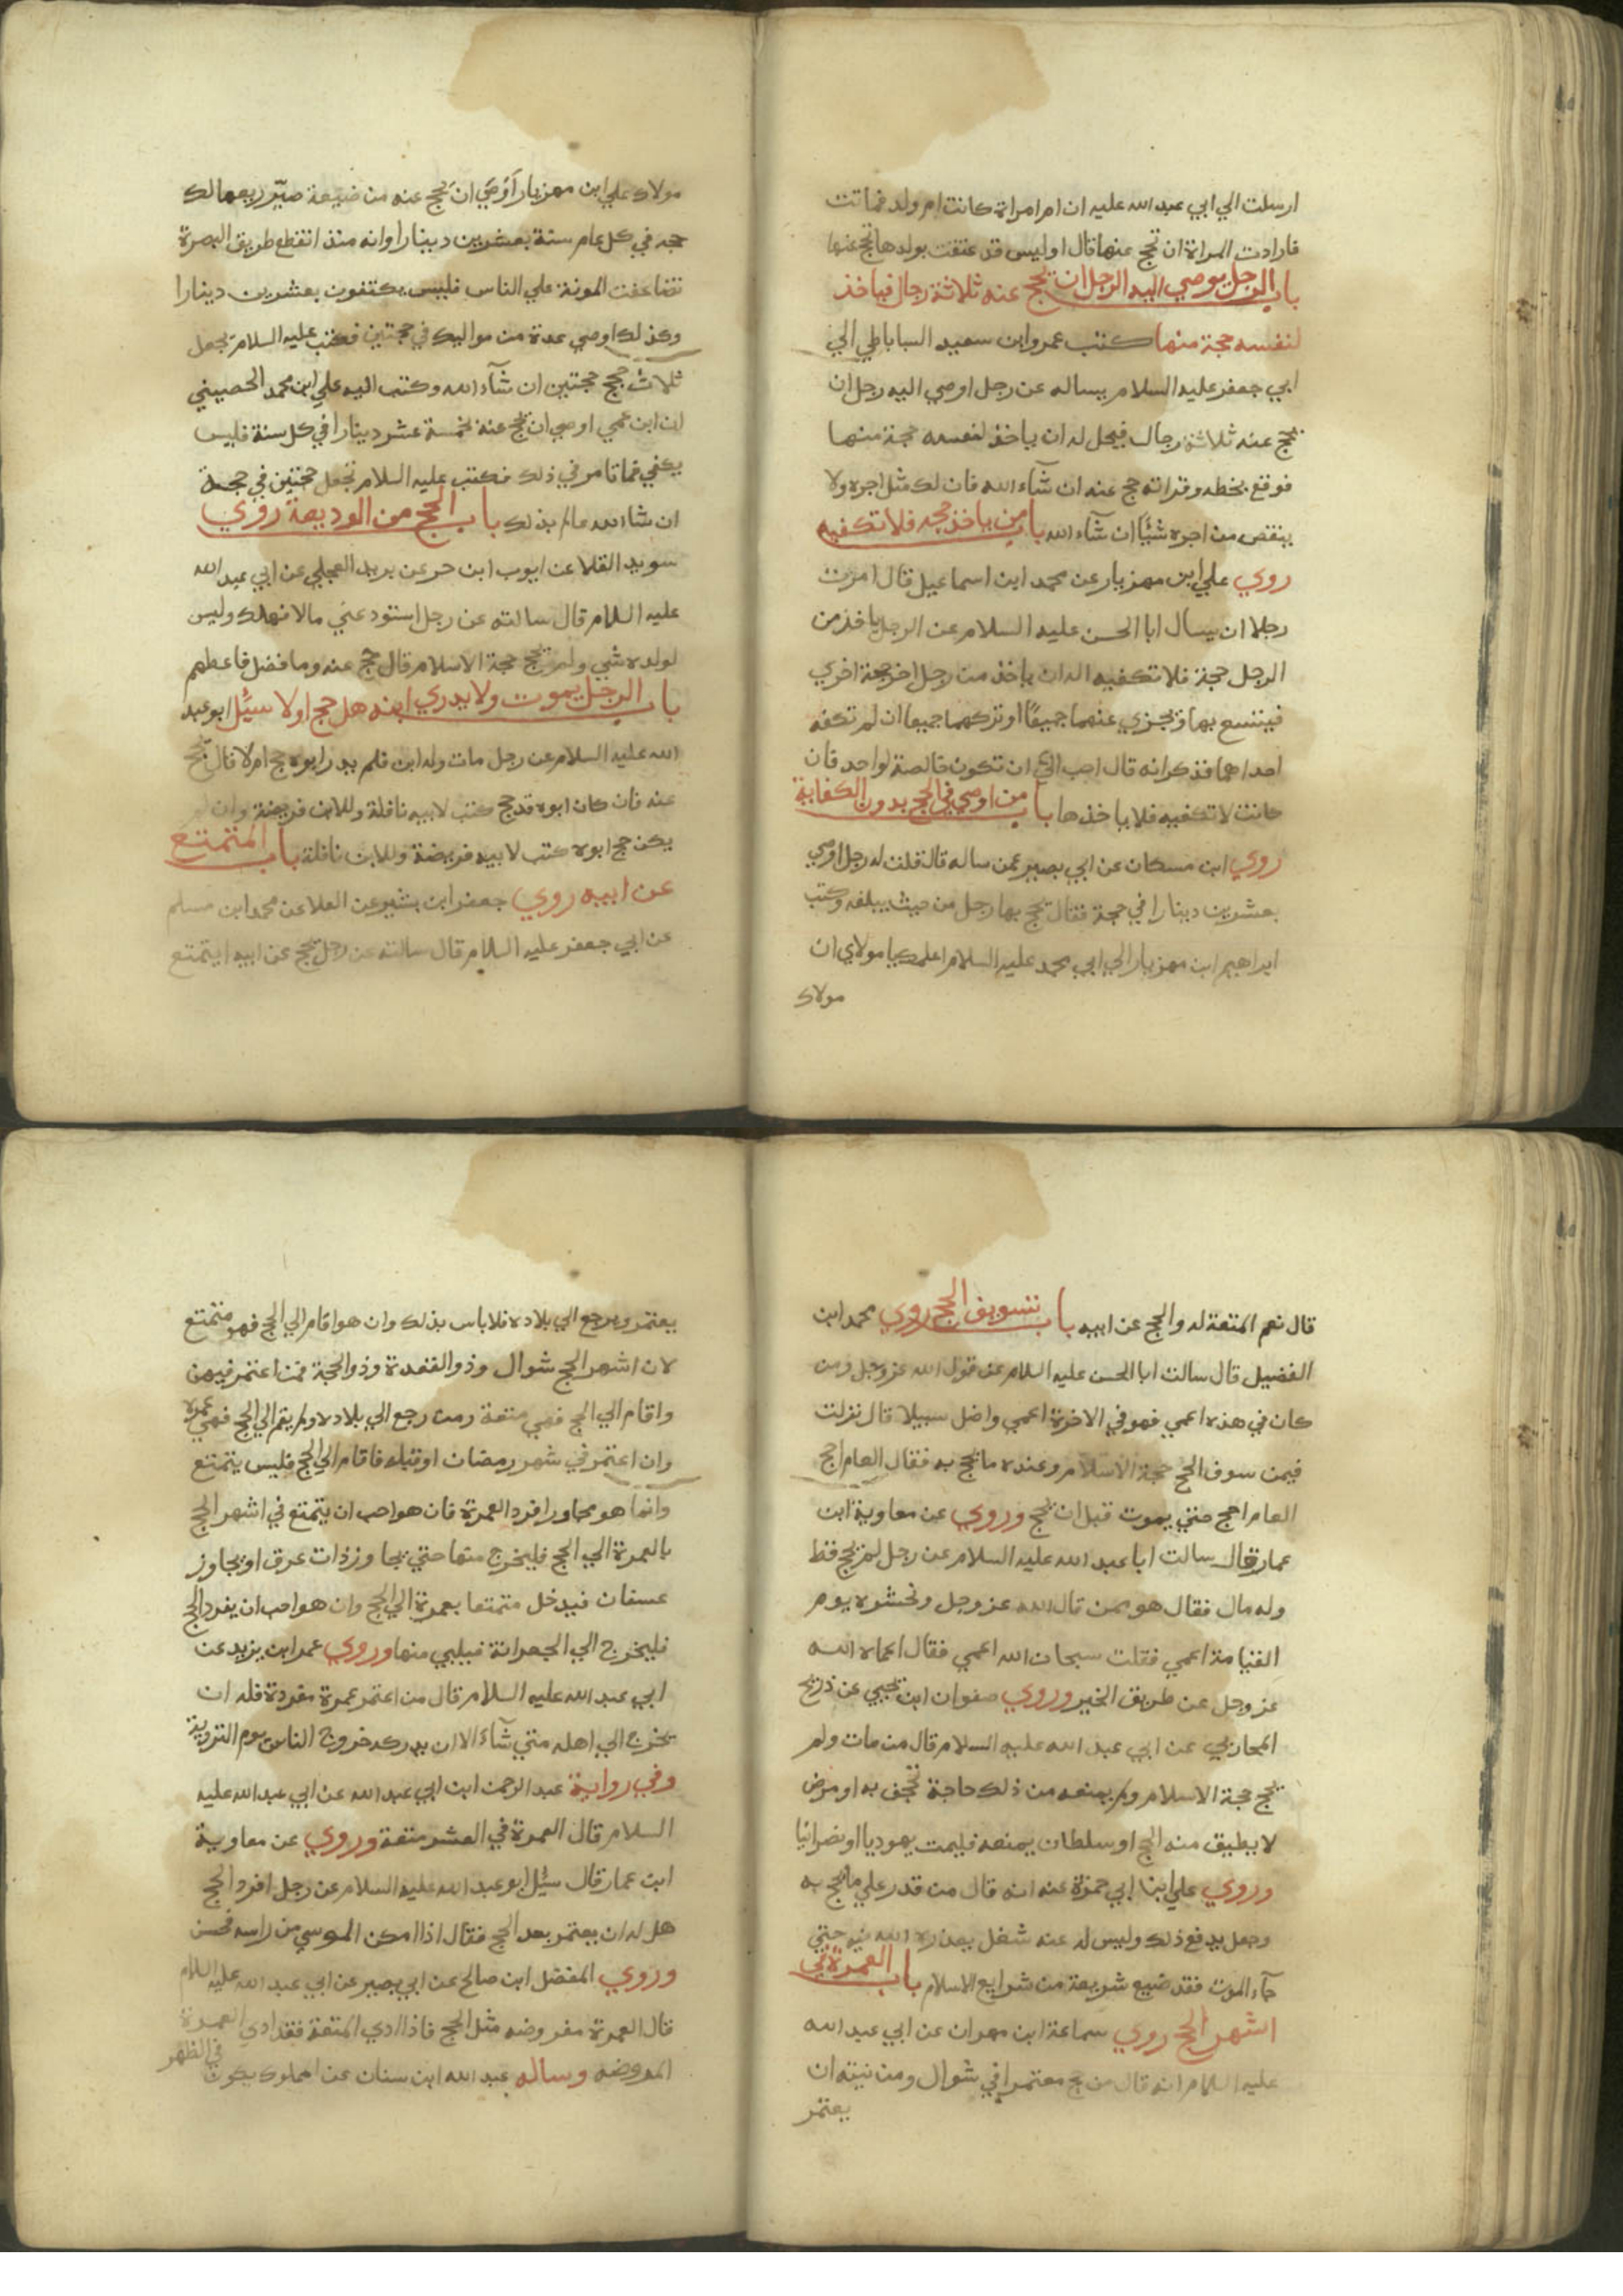 ارسلت الي ابي عبد الله عليه ان ام امراة كانت ام ولد فماتت
فارادت المراة ان تحج عنها قال اوليس قد عتقت بولدها تحج عنها
باب الرجل يوصي اليه الرجل ان يحج عنه ثلاثة رجال فياخذ
لنفسه حجة منها كتب عمرو ابن سعيد الساباطي الي
ابي جعفر عليه السلام يساله عن رجل اوصي اليه رجل ان
يحج عنه ثلاثة رجال فيحل له ان ياخذ لنفسه حجة منها
فوقع بخطه وقراته حج عنه ان شآء الله فان لك مثل اجره ولا
ينقص من اجره شيًا ان شآء الله باب من ياخذ حجه فلا تكفيه
روي علي ابن مهزيار عن محمد ابن اسماعيل قال امرت
رجلا ان يسال ابا الحسن عليه السلام عن الرجل ياخذ من
الرجل حجة فلا تكفيه اله ان ياخذ من رجل اخر حجة اخري
فيتسع بها وتجزي عنهما جميعًا او تركهما جميعا ان لم تكفه
احداهما فذكر انه قال احب الي ان تكون خالصة لواحد فان
كانت لا تكفيه فلا ياخذها باب من اوصي في الحج بدون الكفاية
روي ابن مسكان عن ابي بصير عمن ساله قال قلت له رجل اوصي
بعشرين دينارا في حجة فقال يحج بها رجل من حيث يبلغه وكتب
ابراهيم ابن مهزيار الي ابي محمد عليه السلام اعلمك يا مولاي ان
مولاك
مولاك علي ابن مهزيار اَوْصَي ان يَحج عنه من ضيعة صيّر ربعها لك
حجه في كل عام سنة بعشرين دينارا وانه منذ انقطع طريق البصرة
تضاعفت المونة علي الناس فليس يكتفون بعشرين دينارا
وكذلك اوصي عدة من مواليك في حجتين فكتب عليه السلام يجعل
ثلاث حجج حجتين ان شآء الله وكتب اليه علي ابن محمد الحصيني
ان ابن عمي اوصي ان يحج عنه بخمسة عشر دينارا في كل سنة فليس
يكفي فما تامر في ذلك فكتب عليه السلام تجعل حجتين في حجة
ان شا الله عالم بذلك باب الحج من الوديعة روي
سويد القلا عن ايوب ابن حر عن بريد العجلي عن ابي عبد الله
عليه السلام قال سالته عن رجل استودعني مالا فهلك وليس
لولده شي ولم يحج حجة الاسلام قال حج عنه وما فضل فاعطهم
باب الرجل يموت ولا يدري ابنه هل حج اولا سئِل ابو عبد
الله عليه السلام عن رجل مات وله ابن فلم يدر ابوه حج ام لا قال يحج
عنه فان كان ابوه قد حج كتب لابيه نافلة وللابن فريضة وان لم
يكن حج ابوه كتب لابيه فريضة وللابن نافلة باب المتمتع
عن ابيه روي جعفر ابن بشير عن العلا عن محمد ابن مسلم
عن ابي جعفر عليه السلام قال سالته عن رجل يحج عن ابيه ايتمتع
قال نعم المتعة له والحج عن ابيه باب تسويف الحج روي محمد ابن
الفضيل قال سالت ابا الحسن عليه السلام عن قول الله عز وجل ومن
كان في هذه اعمي فهو في الاخرة اعمي واضل سبيلا قال نزلت
فيمن سوف الحج حجة الاسلام وعنده ما يحج به فقال العام احج
العام احج حتي يموت قبل ان يحج وروي عن معاوية ابن
عمار قال سالت ابا عبد الله عليه السلام عن رجل لم يحج قط
وله مال فقال هو ممن قال الله عز وجل ونحشره يوم
القيامة اعمي فقلت سبحان الله اعمي فقال اعماه الله
عز وجل عن طريق الخير وروي صفوان ابن يحيي عن ذريح
المحاربي عن ابي عبد الله عليه السلام قال من مات ولم
يحج حجة الاسلام ولم يمنعه من ذلك حاجة تجحف به او مرض
لا يطيق منه الحج او سلطان يمنعه فليمت يهوديا او نصرانيا
وروي علي ابن ابي حمزة عنه انه قال من قدر علي ما يحج به
وجعل يدفع ذلك وليس له عنه شغل يعذره الله فيه حتي
جآء الموت فقد ضيع شريعة من شرايع الاسلام باب العمرة في
اشهر الحج روي سماعة ابن مهران عن ابي عبد الله
عليه السلام انه قال من حج معتمرا في شوال ومن نيته ان
يعتمر
يعتمر ويرجع الي بلاده فلا باس بذلك وان هو اقام الي الحج فهو متمتع
لان اشهر الحج شوال وذو القعدة وذو الحجة فمن اعتمر فيهن
واقام الي الحج فهي متعة ومن رجع الي بلاده ولم يقم الي الحج فهي عمرة
وان اعتمر في شهر رمضان او قبله فاقام الي الحج فليس يتمتع
وانما هو مجاور افرد العمرة فان هو احب ان يتمتع في اشهر الحج
بالعمرة الي الحج فليخرج منها حتي يجاوز ذات عرق او يجاوز
عسفان فيدخل متمتعا بعمرة الي الحج وان هو احب ان يفرد الحج
فليخرج الي الجعرانة فيلبي منها وروي عمر ابن يزيد عن
ابي عبد الله عليه السلام قال من اعتمر عمرة مفردة فله ان
يخرج الي اهله متي شآء الا ان يدركه خروج الناس يوم التروية
وفي رواية عبد الرحمن ابن ابي عبد الله عن ابي عبد الله عليه
السلام قال العمرة في العشر متعة وروي عن معاوية
ابن عمار قال سئِل ابو عبد الله عليه السلام عن رجل افرد الحج
هل له ان يعتمر بعد الحج فقال اذا امكن الموسي من راسه فحسن
وروي المفضل ابن صالح عن ابي بصير عن ابي عبد الله عليه السلام
قال العمرة مفروضه مثل الحج فاذا ادي المتعة فقد ادي العمرة
المفروضه وساله عبد الله ابن سنان عن المملوك يكون في الظهر